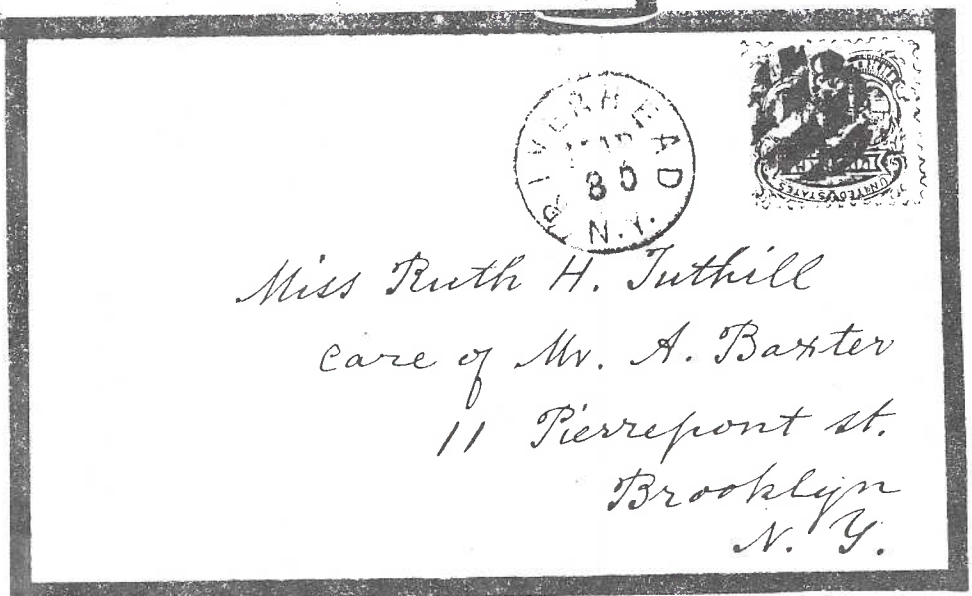 RIVERHEAD
N.Y.
UNITED STATES
Miss Ruth H. Tuthill
care of Mr. A. Baxter
11 Pierrepont st.
Brooklyn
N. Y.